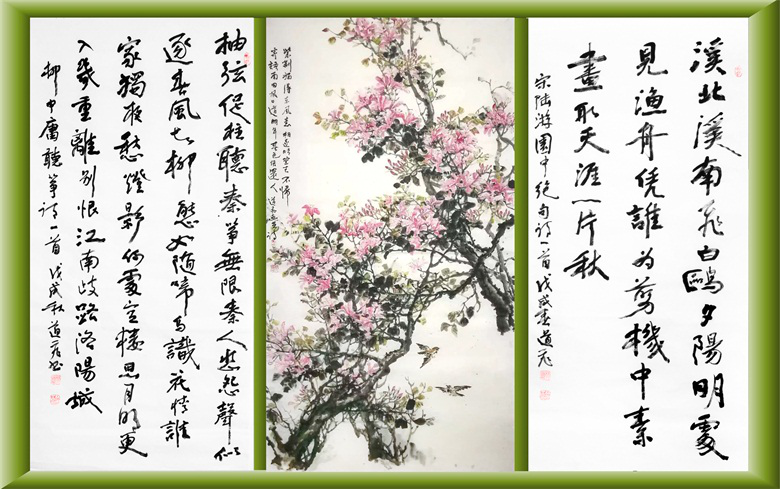 溪北溪南飛白鷗夕陽明處
見漁舟凭誰为剪機中素
畫取天涯一片秋
宋陸游園中絕句詩一首戊戌
抽弦促柱聽秦箏無限秦人悲怨聲似
逐春風知柳態如隨啼鳥識花情誰
家獨夜愁燈影何處空樓思月明更
入幾重離別恨江南歧路洛陽城
柳中庸聽箏詩一首戊戌秋道